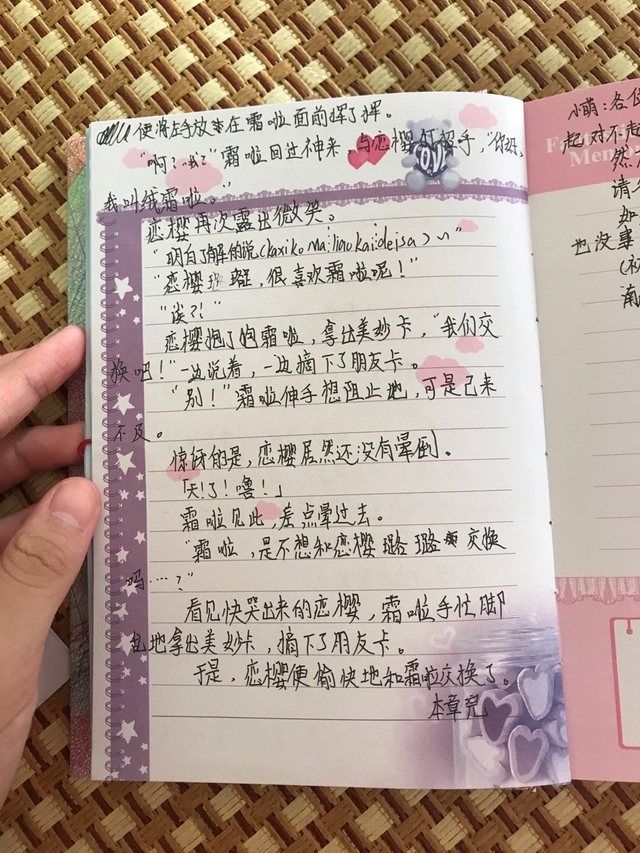 便将左手放在霜啦面前挥了挥。
"啊？我？"霜啦回过神来，与恋樱打招呼，"你好，
我叫绒霜啦。"
恋樱再次露出微笑。
"明白了解的说(kaxikomaliaokaidesa)~"
"恋樱璐璐，很喜欢霜啦呢！"
"诶？！"
恋樱抱了抱霜啦，拿出美妙卡，"我们交
换吧！"一边说着，一边摘下了朋友卡。
"别！"霜啦伸手想阻止她，可是已来
不及。
惊讶的是，恋樱居然还没有晕倒。
「天！了！噜！」
霜啦见此，差点晕过去。
"霜啦，是不想和恋樱璐璐交换
吗……？"
看见快哭出来的恋樱，霜啦手忙脚
乱地拿出美妙卡，摘下了朋友卡。
于是，恋樱便愉快地和霜啦交换了。
本章完
LOVE
小萌：各位
起对不起
然
请
如
也没事
(初
南